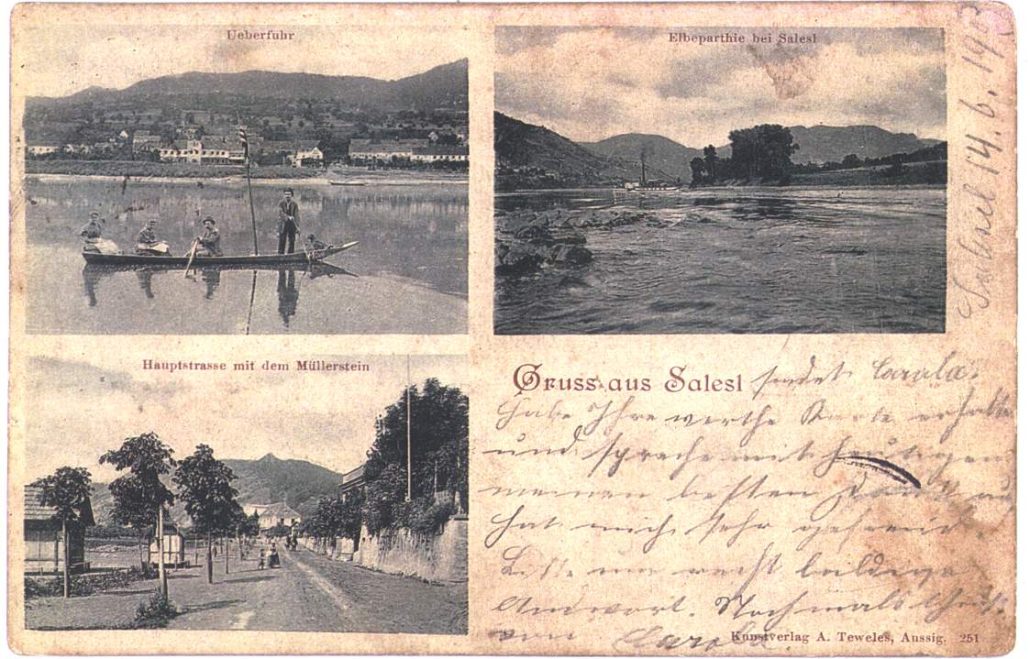 Ueberfuhr
Elbeparthie bei Salesl
Salesl 14.6.19
Hauptstrasse mit dem Müllerstein
Gruss aus Salesl sendet Carola.
Habe Ihre werthe Karte erhalten
und spreche mit heutigen
meinen besten Dank
hat mich sehr gefreut.
Bitte um recht baldige
Andwort. Nochmals
von Carola.
Kunstverlag A. Teweles, Aussig. 251